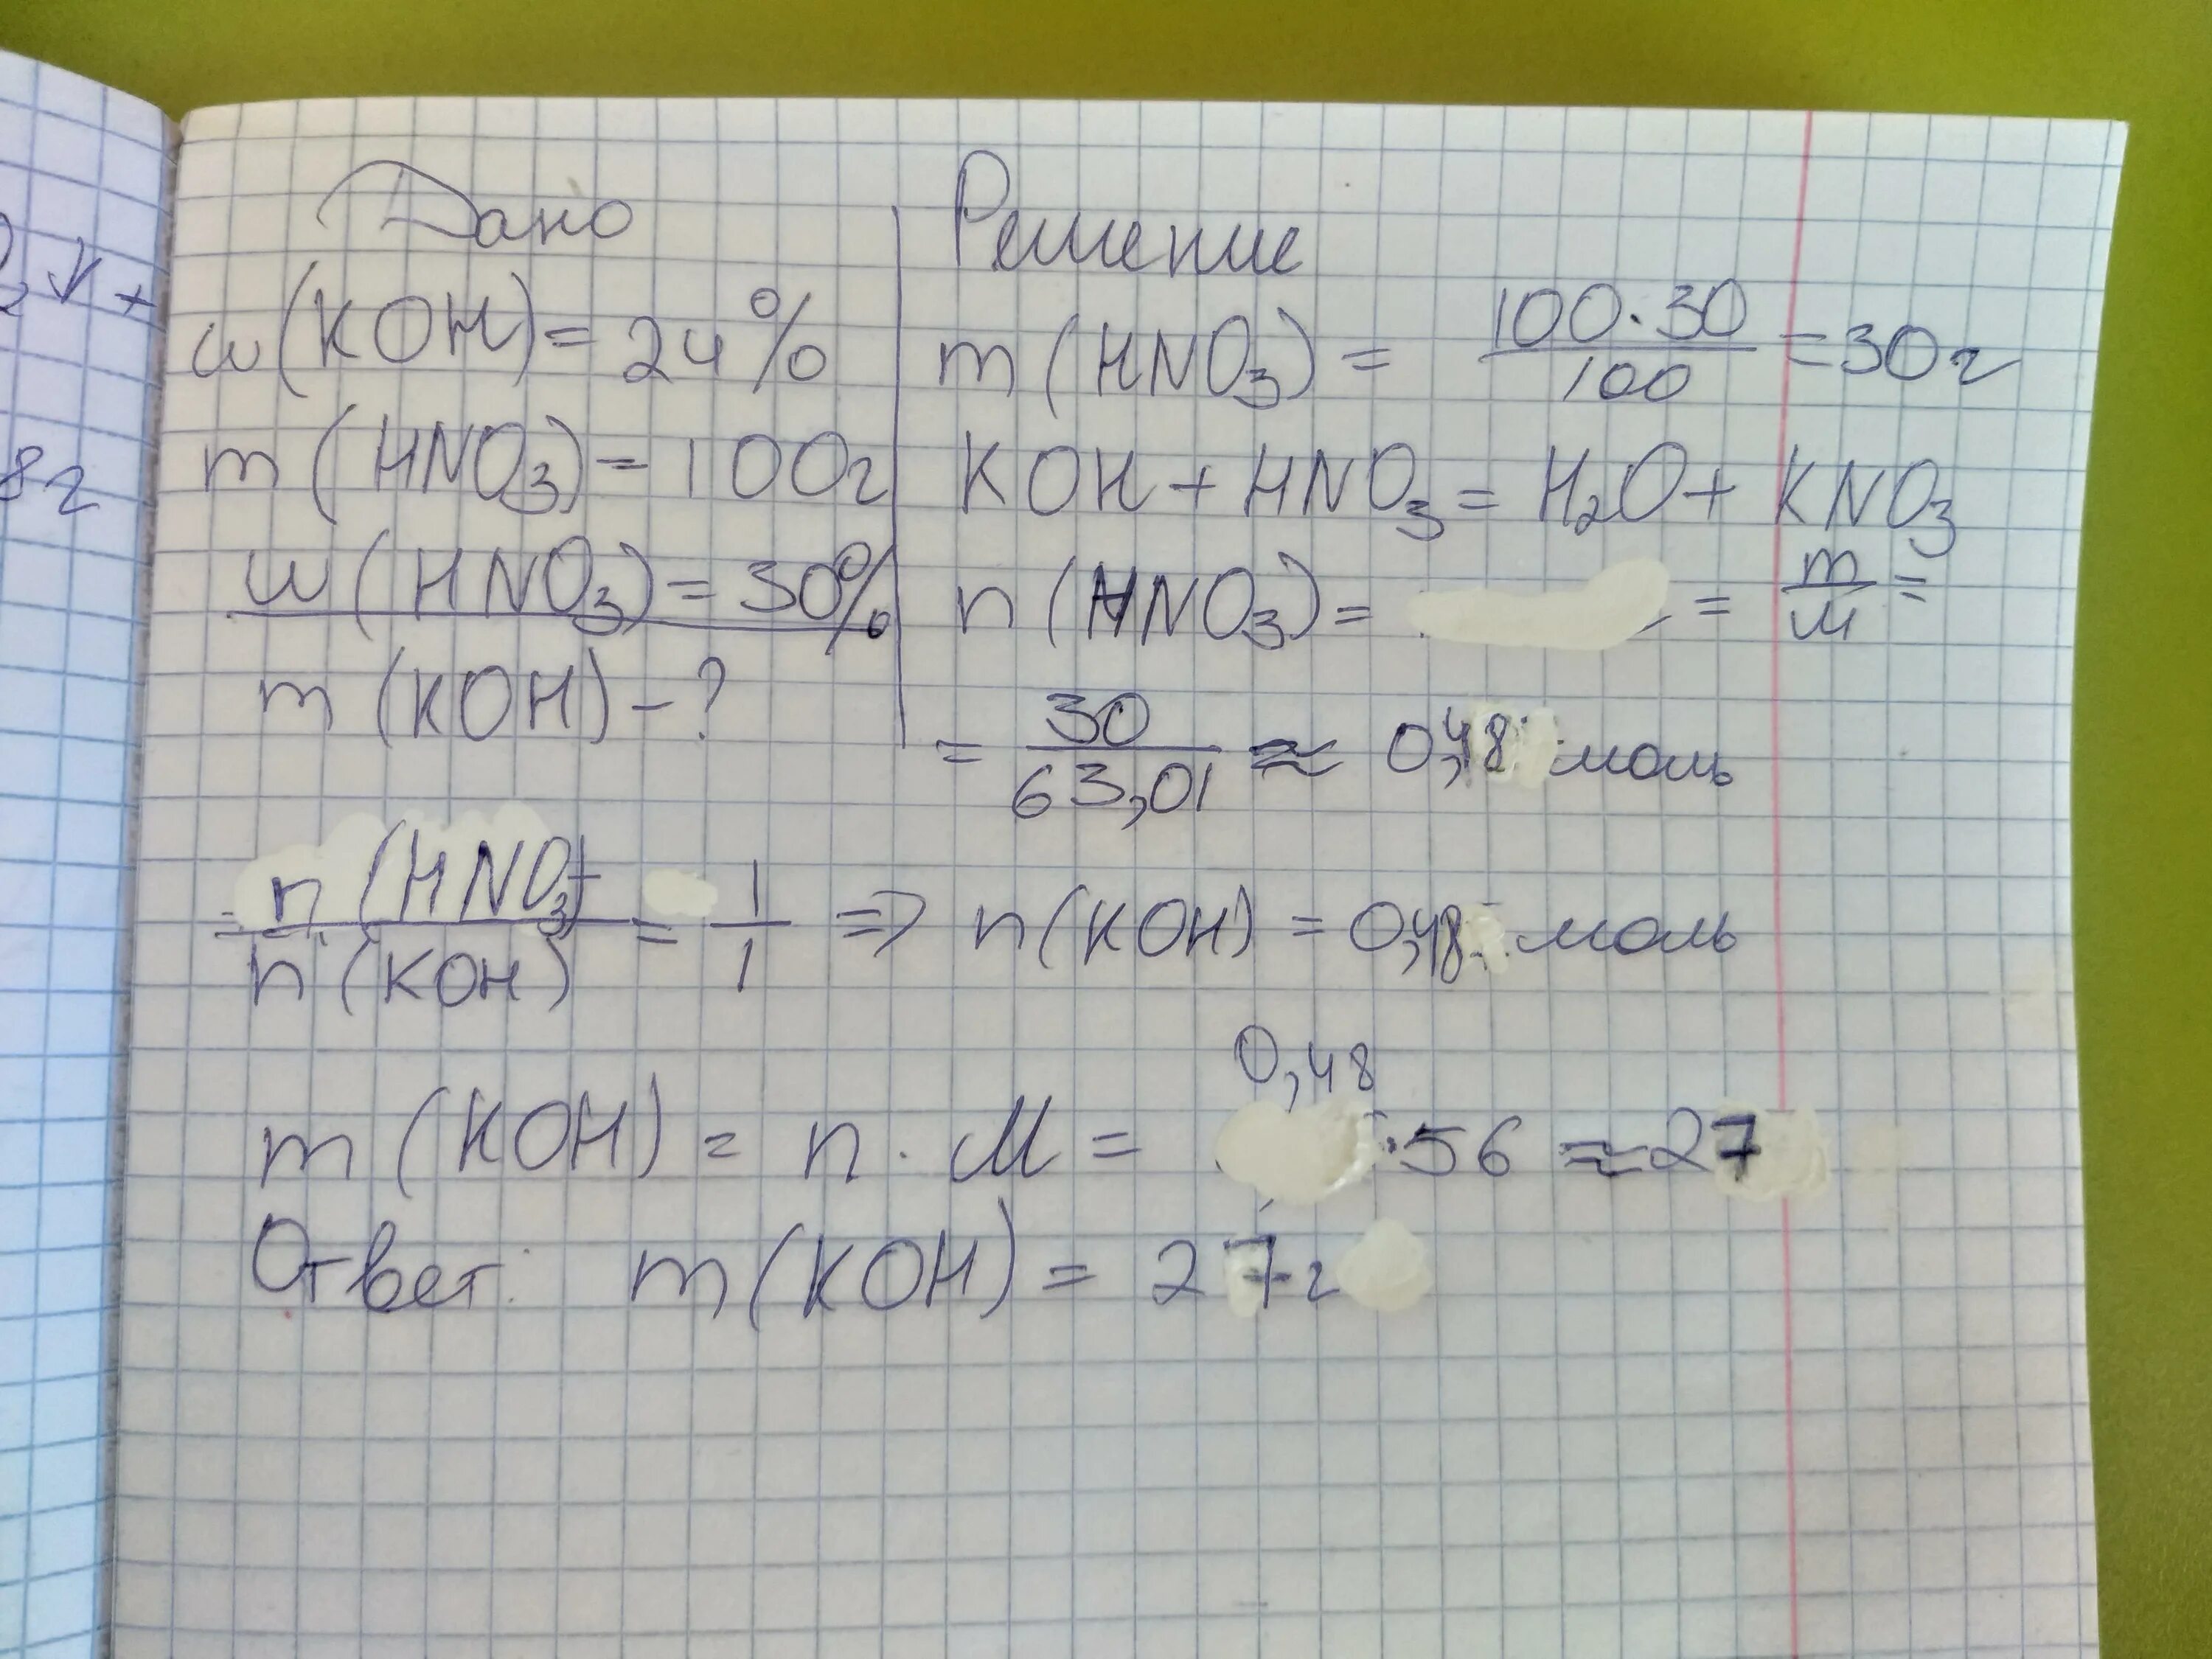 Дано
w(KOH) = 24%
m(HNO3) = 100г
w(HNO3) = 30%
m(KOH) - ?
Решение
m(HNO3) = 100·30/100 = 30г
KOH + HNO3 = H2O + KNO3
n(HNO3) = = m/M =
= 30/63,01 ≈ 0,48 моль
= n(HNO3)/n(KOH) = 1/1 => n(KOH) = 0,48 моль
m(KOH) = n · M = 0,48·56 ≈ 27
Ответ: m(KOH) = 27г
2↓+
8г